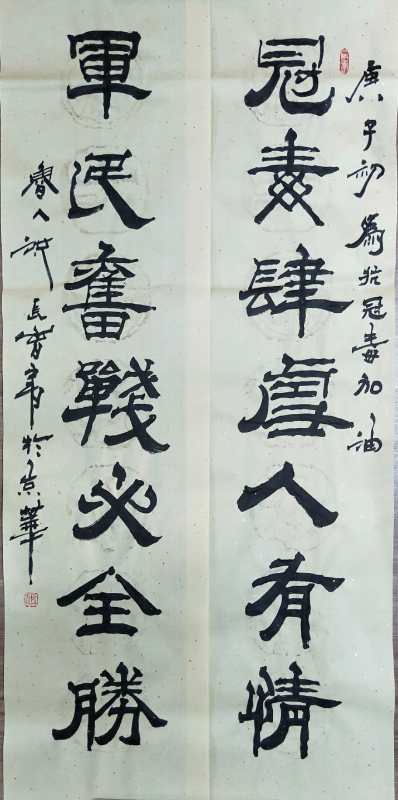 庚子初為抗冠毒加油
冠毒肆虐人有情
軍民奮戰必全勝
魯人長書於京華